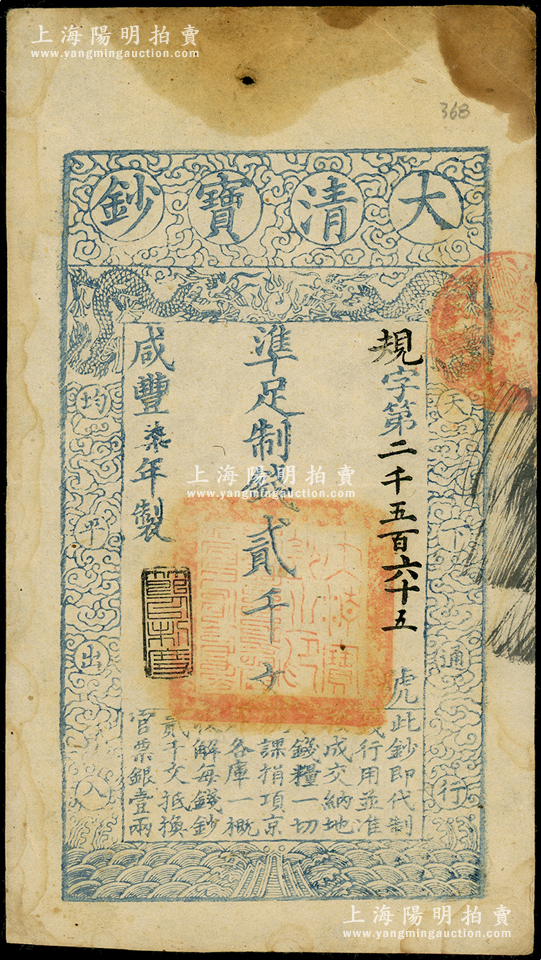 上海陽明拍賣
www.yangmingauction.com
368
大清寶鈔
天下通行
規字第二千五百六十五號
準足制錢貳千文
咸豐柒年製
均平出入
此鈔即代制
錢行用並准
成交納地
錢糧一切
課捐項京
各庫一概
收解每錢鈔
貳千文抵換
官票銀壹兩
上海陽明拍賣
www.yangmingauction.com
上海陽明拍賣
www.yangmingauction.com